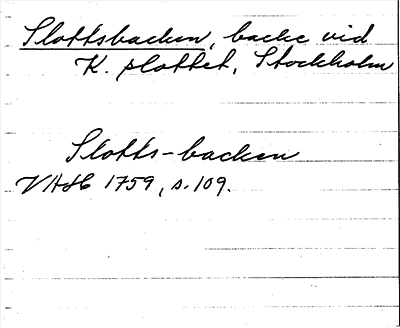 Slottsbacken, backe vid
K. slottet, Stockholm
Slotts-backen
VAH 1759, s. 109.